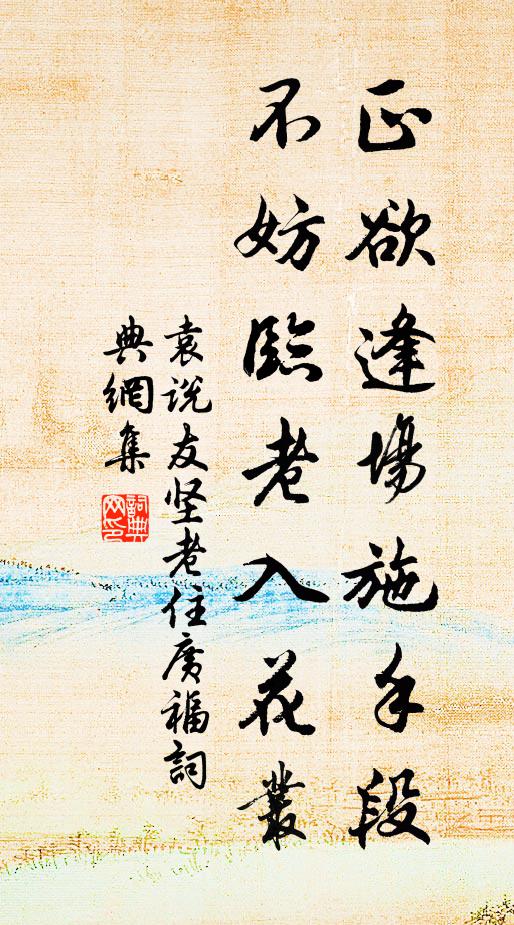 正欲逢場施手段
不妨臨老入花叢
袁说友坚老住廣福詞
典網集
詞典
网印